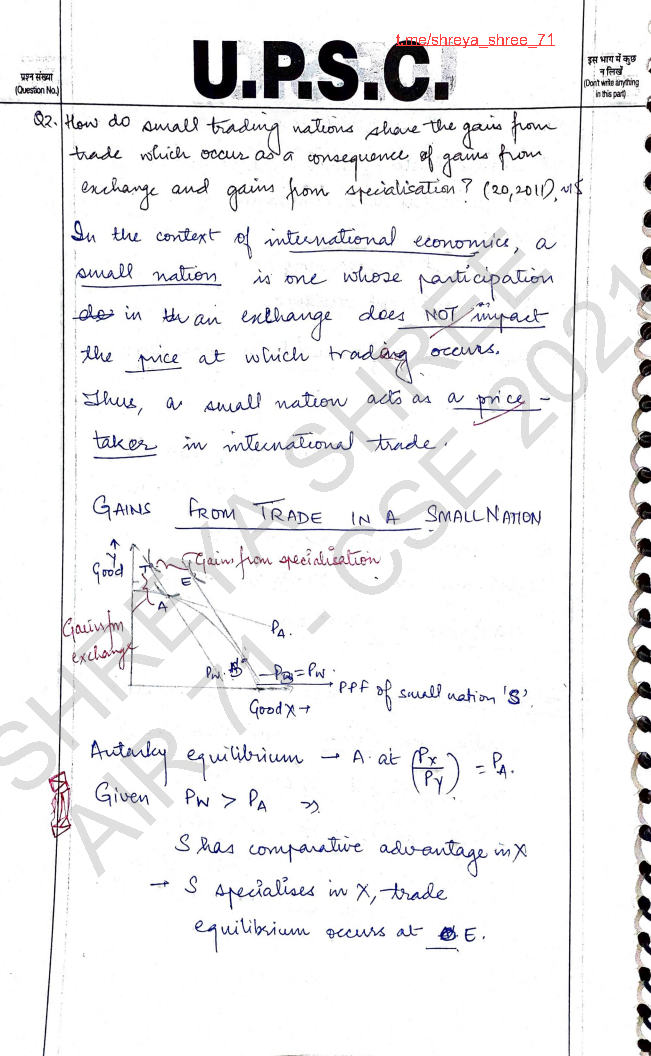 t.me/shreya_shree_71
U.P.S.C.
प्रश्न संख्या
(Question No.)
इस भाग में कुछ
न लिखें
(Don't write anything
in this part)
Q2. How do small trading nations share the gains from
trade which occur as a consequence of gains from
exchange and gains from specialisation? (20, 2011),
In the context of international economics, a
small nation is one whose participation
in an exchange does NOT impact
the price at which trading occurs.
Thus, a small nation acts as a price-
taker in international trade.
GAINS FROM TRADE IN A SMALL NATION
Good Y
T
Gains from specialisation
E
A
Gains fm
exchange
PA.
PW.
=PW.
PPF of small nation 'S'.
Good X →
Autarky equilibrium → A. at (Px/Py) = PA.
Given PW > PA ⇒
S has comparative advantage in X
→ S specialises in X, trade
equilibrium occurs at E.
SHREYA SHREE
AIR 71 - CSE 2021